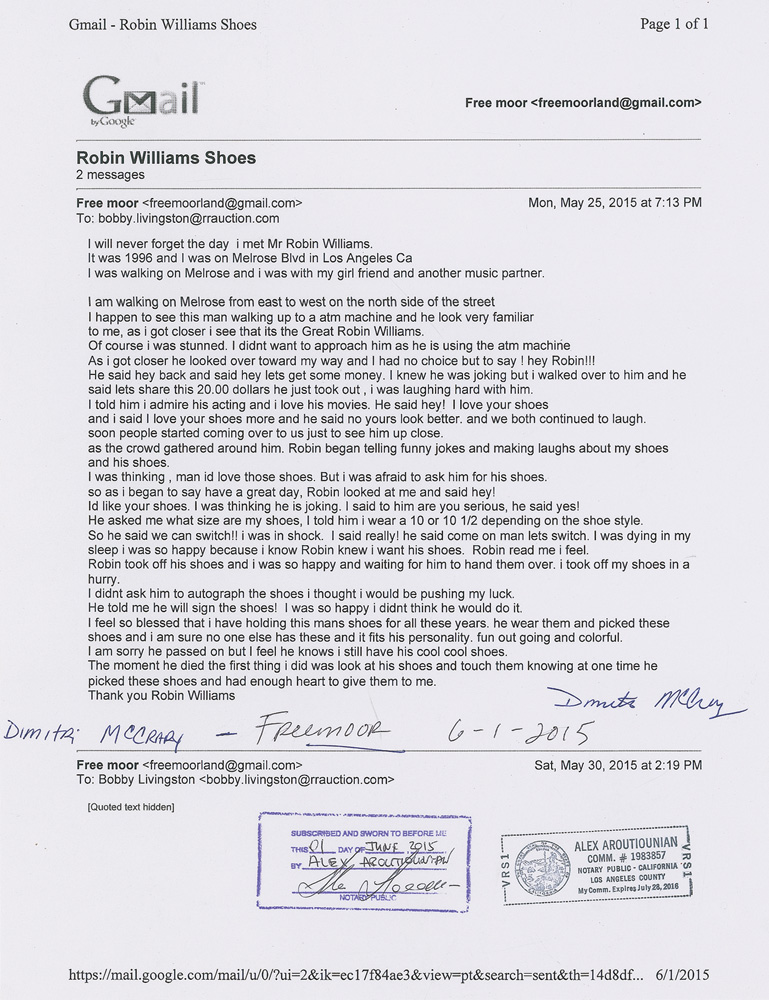 Gmail - Robin Williams Shoes
Page 1 of 1
Gmail
by Google
Free moor <freemoorland@gmail.com>
Robin Williams Shoes
2 messages
Free moor <freemoorland@gmail.com>
Mon, May 25, 2015 at 7:13 PM
To: bobby.livingston@rrauction.com
I will never forget the day i met Mr Robin Williams.
It was 1996 and I was on Melrose Blvd in Los Angeles Ca
I was walking on Melrose and i was with my girl friend and another music partner.
I am walking on Melrose from east to west on the north side of the street
I happen to see this man walking up to a atm machine and he look very familiar
to me, as i got closer i see that its the Great Robin Williams.
Of course i was stunned. I didnt want to approach him as he is using the atm machine
As i got closer he looked over toward my way and I had no choice but to say ! hey Robin!!!
He said hey back and said hey lets get some money. I knew he was joking but i walked over to him and he
said lets share this 20.00 dollars he just took out , i was laughing hard with him.
I told him i admire his acting and i love his movies. He said hey! I love your shoes
and i said I love your shoes more and he said no yours look better. and we both continued to laugh.
soon people started coming over to us just to see him up close.
as the crowd gathered around him. Robin began telling funny jokes and making laughs about my shoes
and his shoes.
I was thinking , man id love those shoes. But i was afraid to ask him for his shoes.
so as i began to say have a great day, Robin looked at me and said hey!
Id like your shoes. I was thinking he is joking. I said to him are you serious, he said yes!
He asked me what size are my shoes, I told him i wear a 10 or 10 1/2 depending on the shoe style.
So he said we can switch!! i was in shock. I said really! he said come on man lets switch. I was dying in my
sleep i was so happy because i know Robin knew i want his shoes. Robin read me i feel.
Robin took off his shoes and i was so happy and waiting for him to hand them over. i took off my shoes in a
hurry.
I didnt ask him to autograph the shoes i thought i would be pushing my luck.
He told me he will sign the shoes! I was so happy i didnt think he would do it.
I feel so blessed that i have holding this mans shoes for all these years. he wear them and picked these
shoes and i am sure no one else has these and it fits his personality. fun out going and colorful.
I am sorry he passed on but I feel he knows i still have his cool cool shoes.
The moment he died the first thing i did was look at his shoes and touch them knowing at one time he
picked these shoes and had enough heart to give them to me.
Thank you Robin Williams
DIMITRI MCCRARY - FREEMOOR 6-1-2015
Free moor <freemoorland@gmail.com>
Sat, May 30, 2015 at 2:19 PM
To: Bobby Livingston <bobby.livingston@rrauction.com>
[Quoted text hidden]
SUBSCRIBED AND SWORN TO BEFORE ME
THIS 01 DAY OF JUNE 2015
BY ALEX AROUTIOUNIAN
NOTARY PUBLIC
VRS1
ALEX AROUTIOUNIAN
COMM. # 1983857
NOTARY PUBLIC - CALIFORNIA
LOS ANGELES COUNTY
My Comm. Expires July 28, 2016
VRS1
https://mail.google.com/mail/u/0/?ui=2&ik=ec17f84ae3&view=pt&search=sent&th=14d8df... 6/1/2015